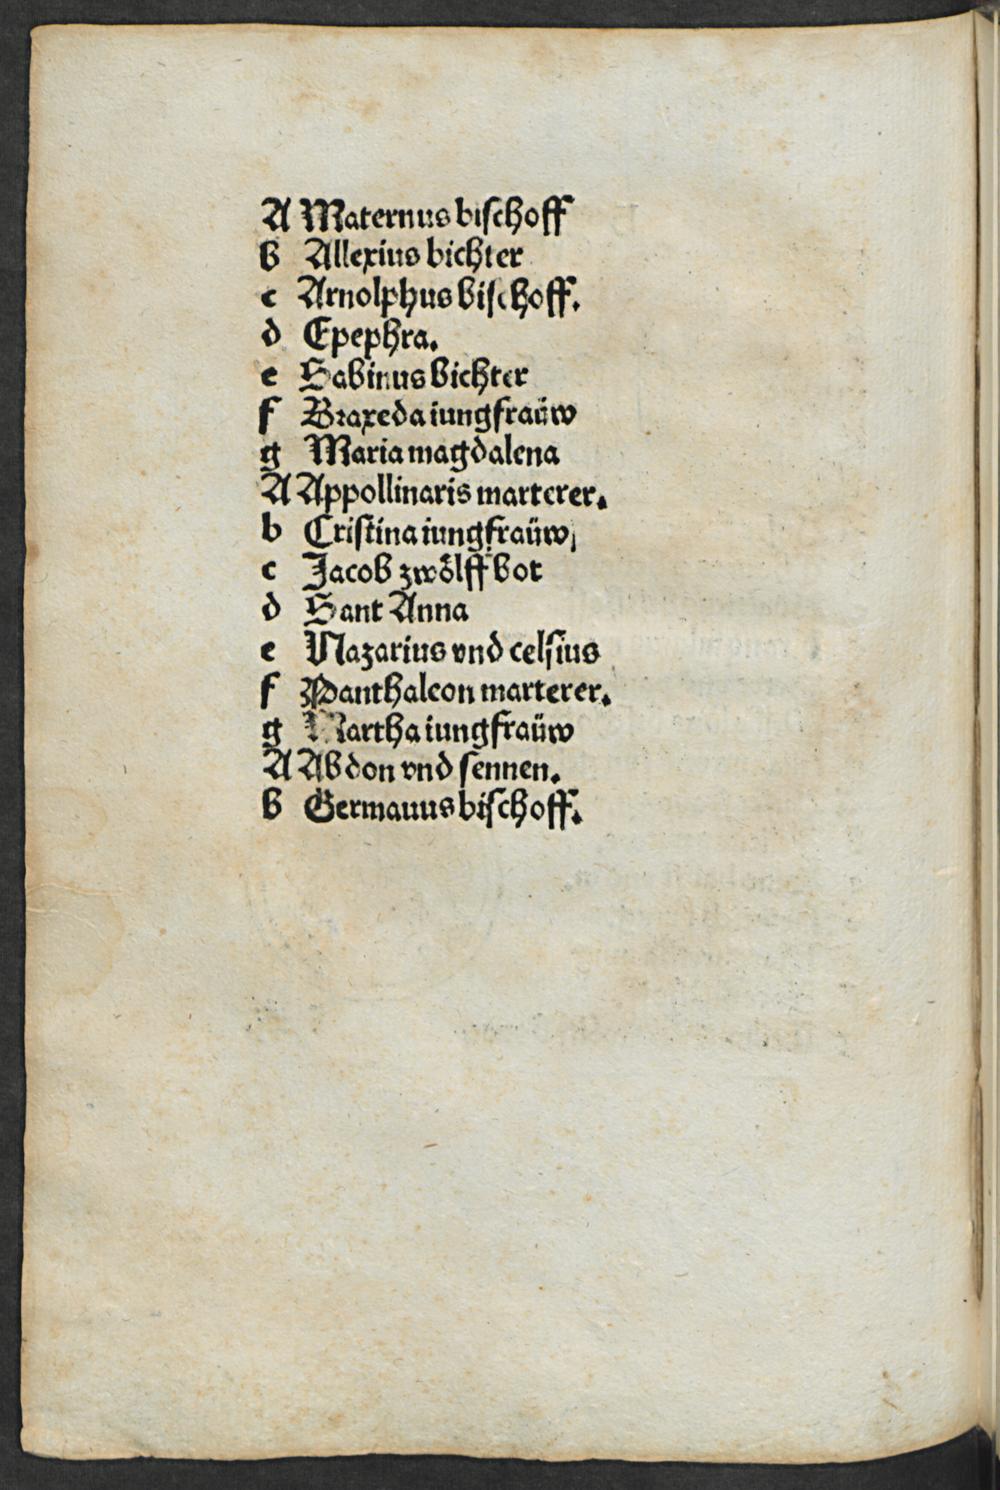 A Maternus biſchoff
B Allexius bichter
c Arnolphus Biſchoff.
d Epephra.
e Sabinus Bichter
f Braxeda iungfraüw
g Maria magdalena
A Appollinaris marterer.
b Criſtina iungfraüw
c Jacob zwoͤlff Bot
d Sant Anna
e Nazarius vnd celſius
f Panthaleon marterer.
g Martha iungfraüw
A Abdon vnd ſennen.
B Germauus biſchoff.